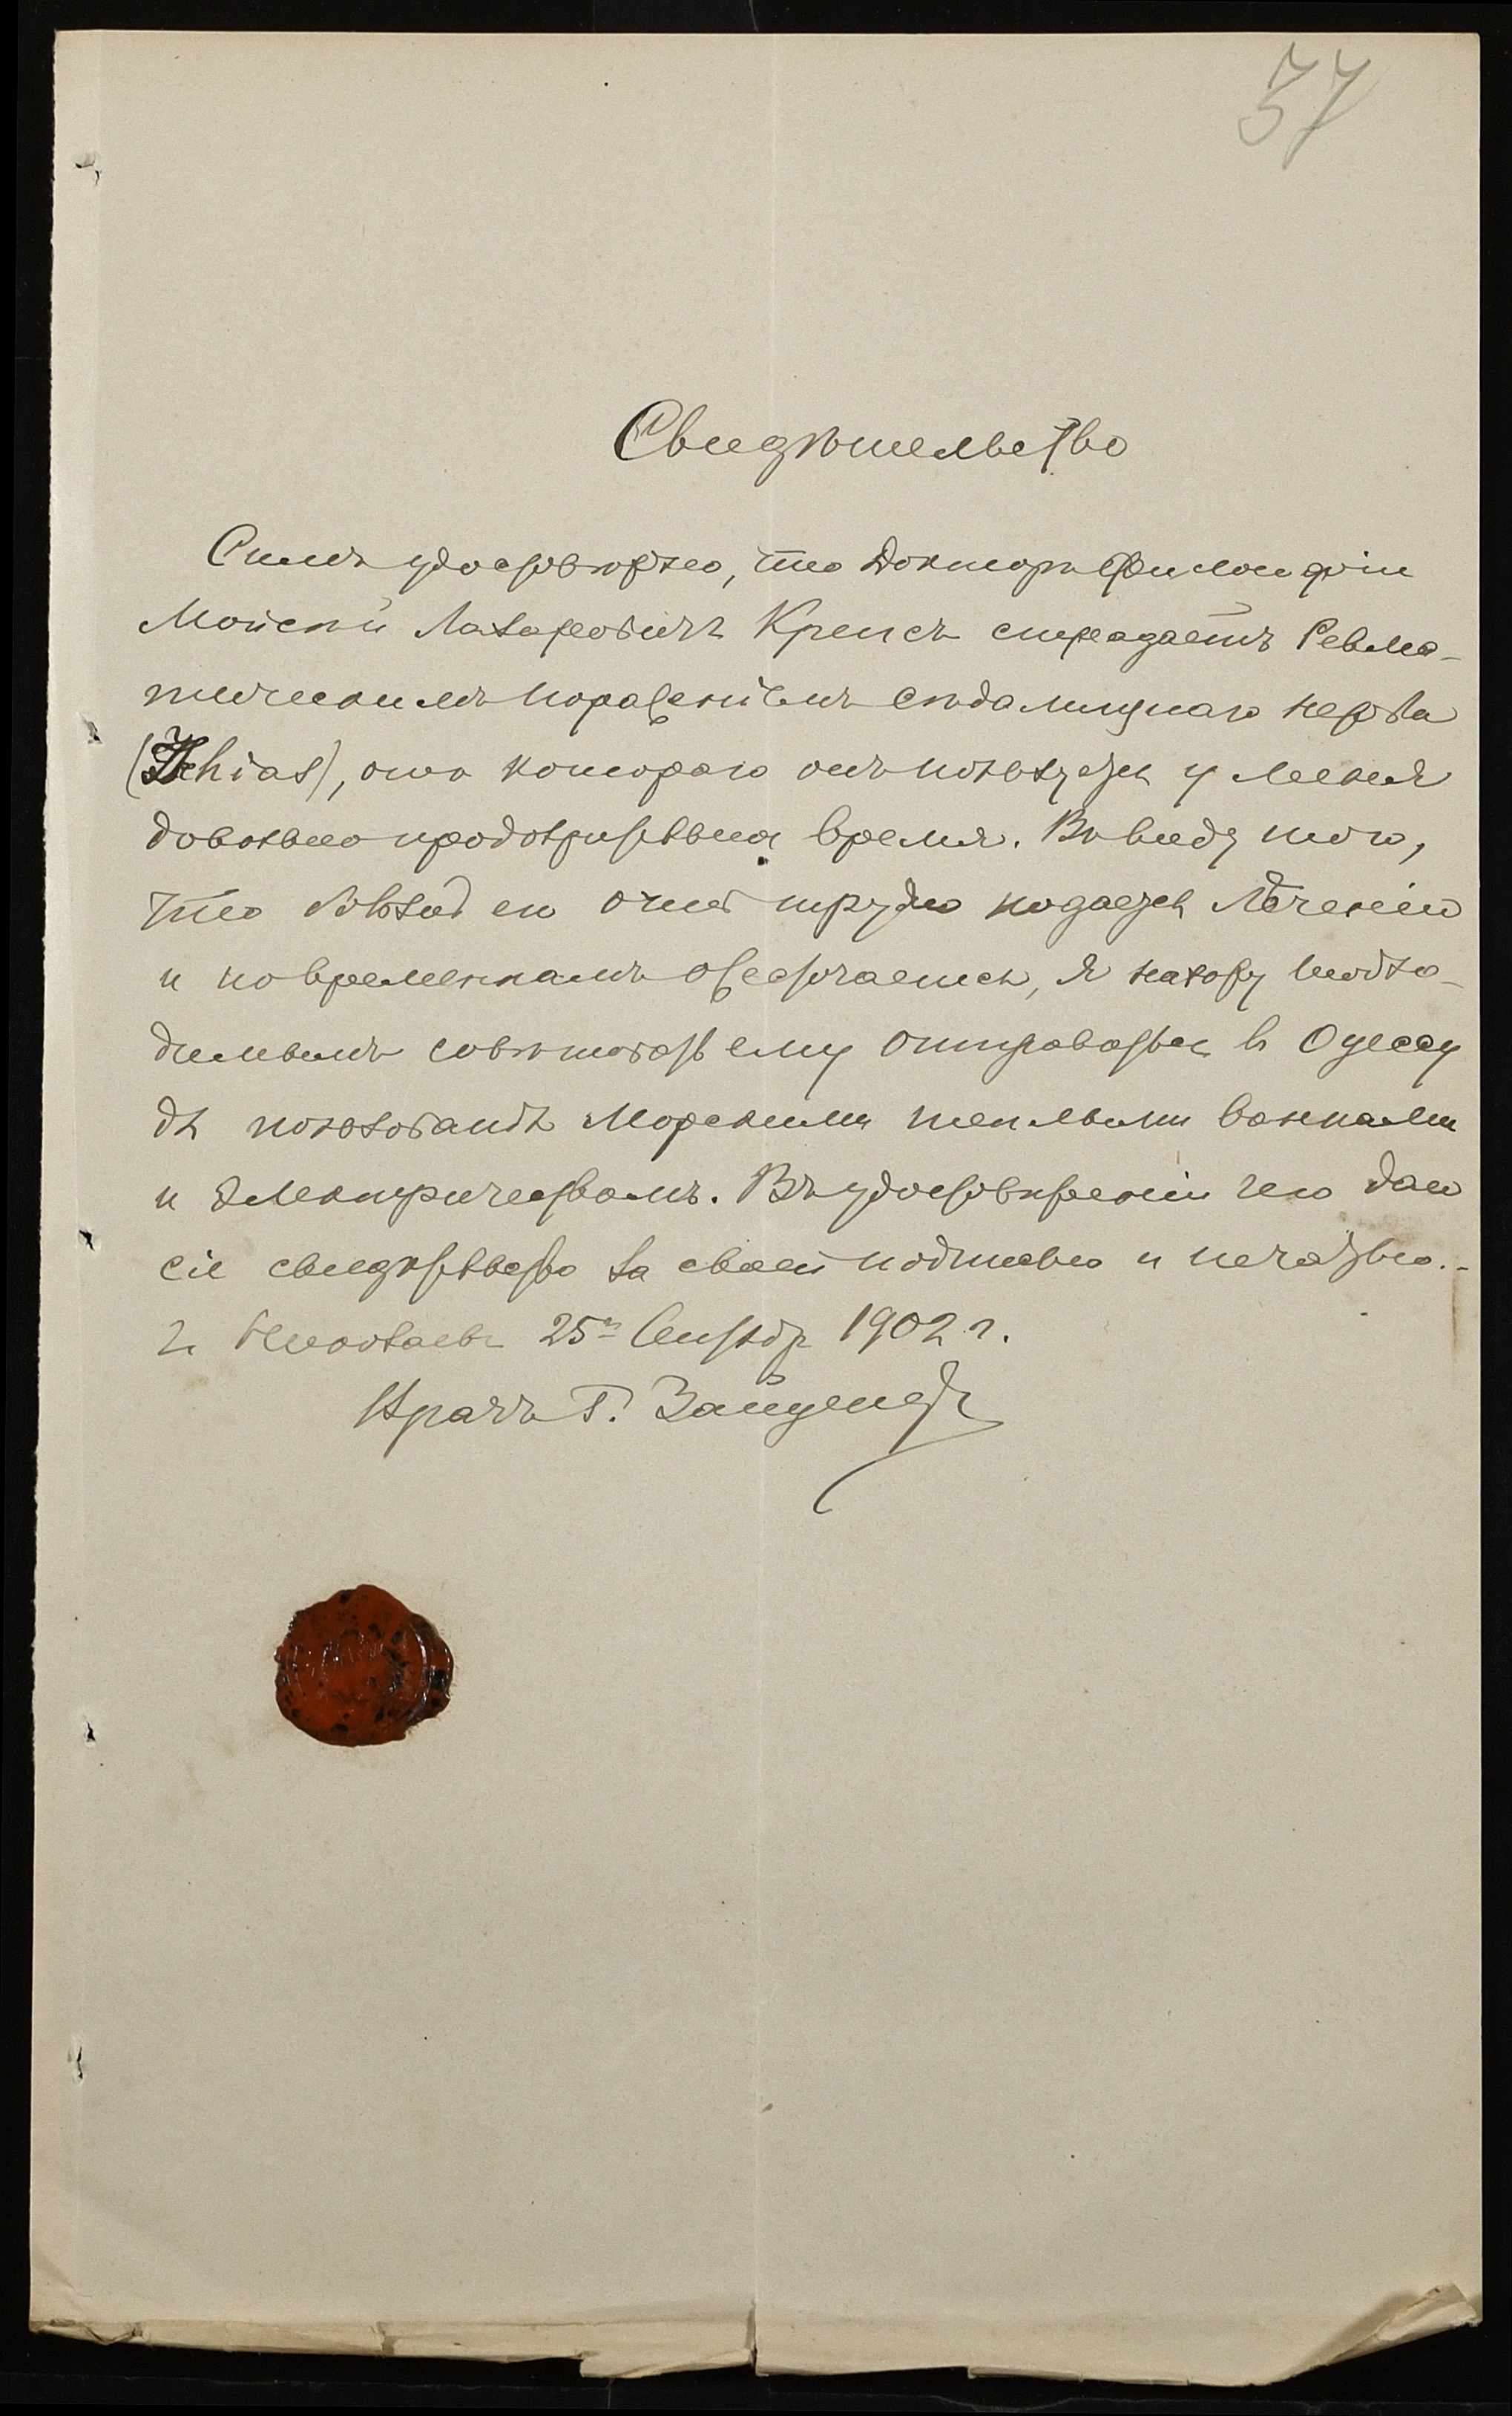 37
Свидѣтельство
Симъ удостовѣряю, что Докторъ Философіи
Мойсей Лазаревичъ Крепсъ страдаетъ Ревма-
тическимъ пораженіемъ сѣдалищнаго нерва
(Ischias), отъ котораго онъ пользуется у меня
довольно продолжительная время. Въ виду того,
что болѣзнь его очень трудно подается лѣченію
и по временамъ обостряется, я нахожу необхо-
димымъ совѣтовать ему отправаться въ Одессу
дл пользованія морскими теплыми ваннами
и электричествомъ. Въ удостовѣреніи чего даю
сіе свидѣтельство за своей подписью и печатью.-
г. Николаевъ 25го Октябр 1902 г.
Врачъ Г.